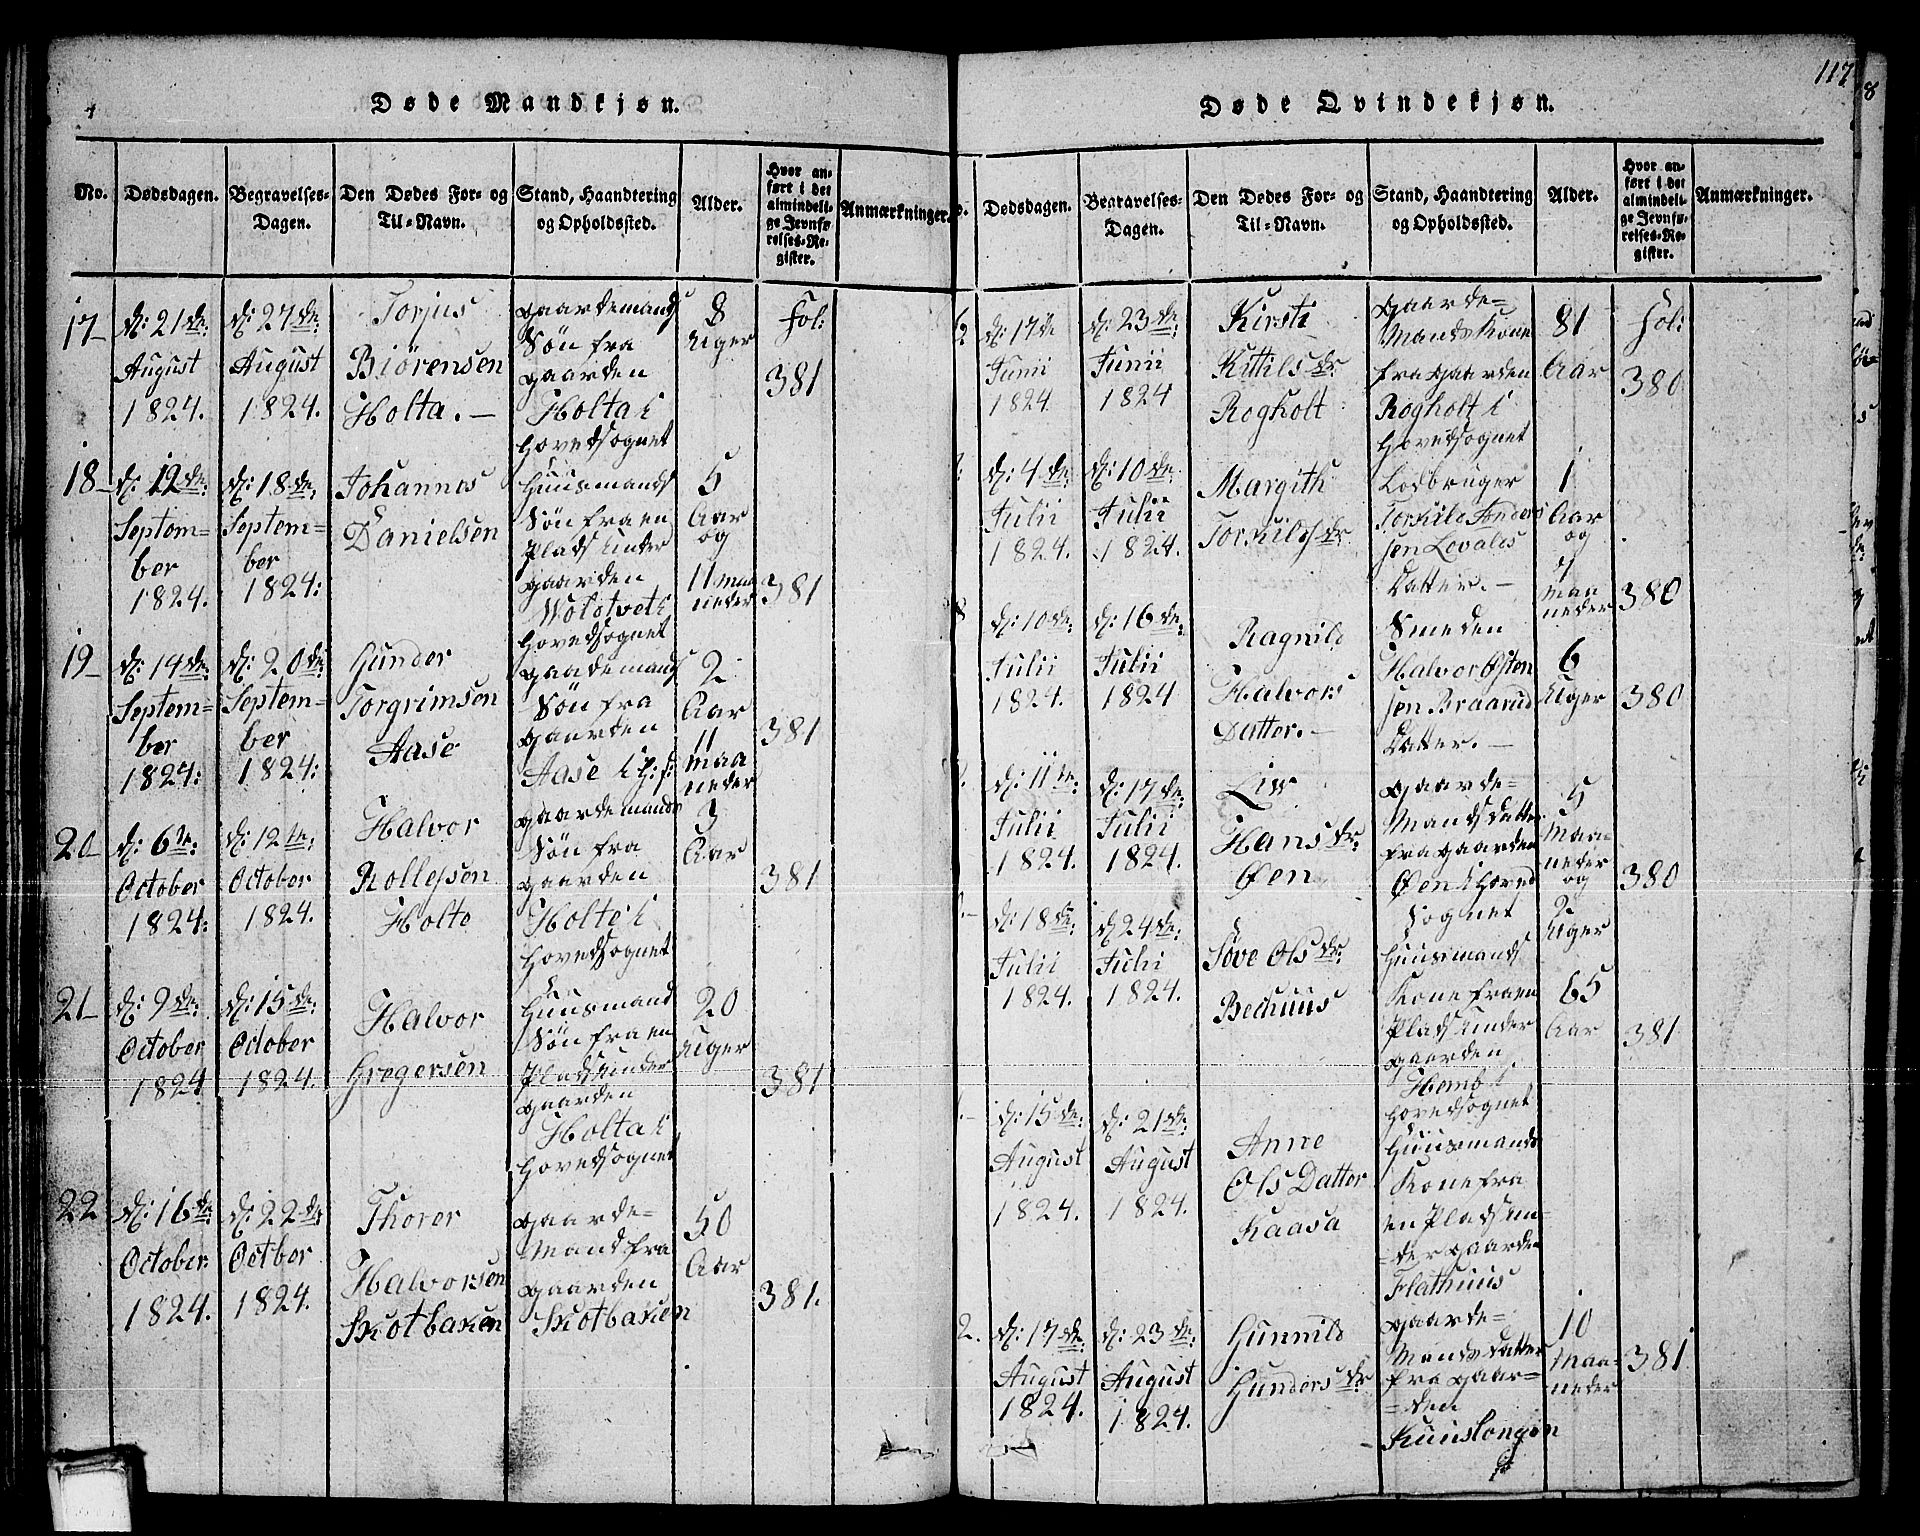 Døde Mandkjøn.
No. Dødsdagen. Begravelses-Dagen. Den Dødes For- og Til-Navn. Stand, Haandtering og Opholdssted. Alder. Hvor anført i det almindelige Jevnførelses-Register. Anmærkninger.
17
d: 21de:
August
1824.
d: 27de:
August
1824.
Torjus
Biørensen
Holta.
gaardemands
Søn fra
gaarden
Holta i
Hovedsognet
8
Uger
Fol:
381
18
d: 12de:
Septem=
ber
1824.
d: 18de,
Septem=
ber
1824:
Johannes
Danielsen
Huusmands
Søn fra en
Plads under
gaarden
Hovedsognet
5
Aar
og
11 maa
neder
381
19
d: 14de:
Septem=
ber
1824:
d: 20de:
Septem=
ber
1824:
Gunder
Torgrimsen
Aase
gaademands
Søn fra
gaarden
Aase i H: s:
2
Aar
11
maa
neder
381
20
d: 6te:
October
1824:
d: 12te:
October
1824.
Halvor
Rollefsen
Holte
gaardemands
Søn fra
gaarden
Holte i
Hovedsognet
3
Aar
381
21
d: 9de:
October
1824
d: 15de:
October
1824.
Halvor
Gregersen
Huusmand
Søn fra en
Plads under
gaarden
Holta i
Hovedsognet
20
Uger
381
22
d: 16de:
October
1824.
d: 22de
Octber
1824.
Thorer
Halvorsen
Skotbaken
gaarde=
Mand fra
gaarden
Skotbaken
50
Aar
381.
117
8
Døde Qvindekjøn.
Dødsdagen. Begravelses-Dagen. Den Dødes For- og Til-Navn. Stand, Haandtering og Opholdssted. Alder. Hvor anført i det almindelige Jevnførelses-Register. Anmærkninger.
d: 17de
Junii
1824
d: 23de:
Junii
1824
Kirsti
Kittilsdr
Rogholt
gaarde=
Mands Kone
fra gaarden
Rogholt i
Hovedsognet
81
Aar
Fol:
380
d: 4de:
Julii
1824.
d: 10de
Julii
1824.
Margith
Torkildsdr
Lodbruger
Torkild Anders
sen Lovalds
Datter.
1
Aar
og
maa
neder
380
d: 10de:
Julii
1824.
d: 16de:
Julii
1824
Ragnild
Halvors
Datter.
Smeden
Halvor Østen
sen Braarud
Datter.
6
Uger
380
d: 11te:
Julii
1824.
d: 17de:
Julii
1824.
Liv
Hansdr:
Øen
gaarde=
Mands Datter
fra gaarden
Øen i Hoved
Sognet
5
Maa=
neder
og
2
Uger
380
d: 18de:
Julii
1824.
d: 24de:
Julii
1824.
Søve Olsdr:
Bechuus
Huusmands
Kone fra en
Plads under
gaarden
Hemb i
Hovedsognet
65
Aar
381
d: 15de:
August
1824.
d: 21de:
August
1824.
Anne
Ols Datter
Kaasa
Huusmands
Kone fra
en Plads un=
=der gaarden
Flathuus
2.
d: 17de:
August
1824.
d: 23de:
August
1824.
Gunnild
Gundersdr
gaarde=
Mands Datter
fra gaar=
=den
10
Maa=
neder
381